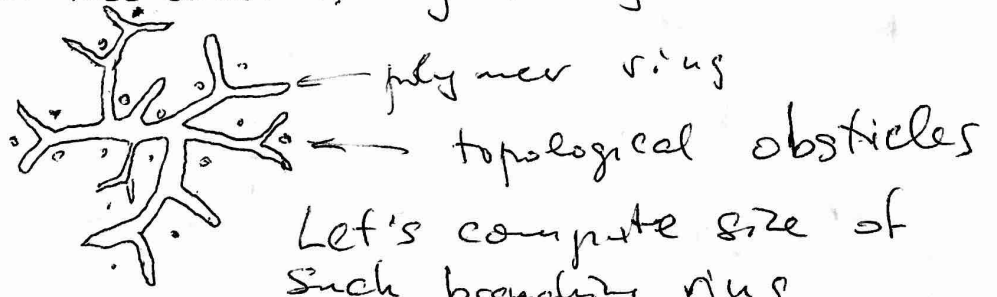 polymer ring
topological obsticles
Let's compute size of
such branching ring